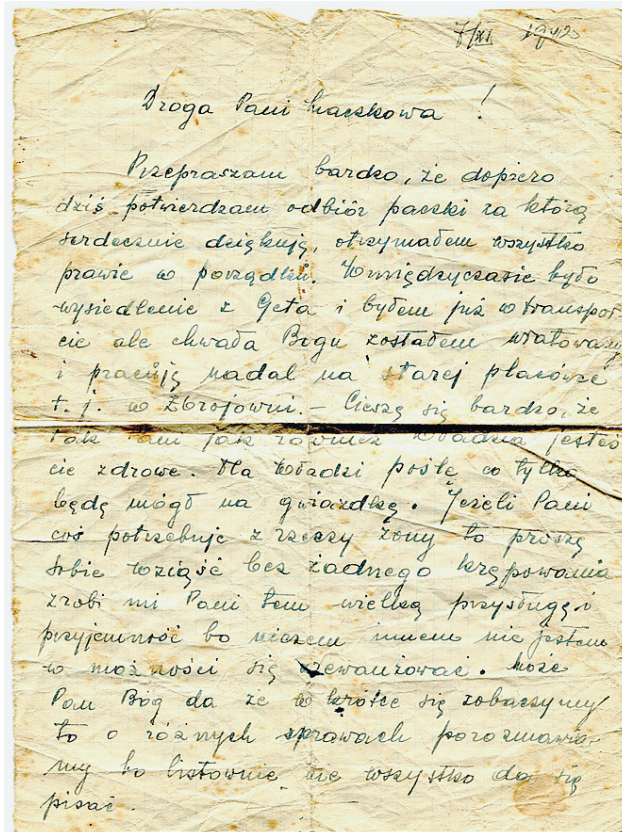 7/XI 1942
Droga Pani Maczkowa !
Przepraszam bardzo, że dopiero
dziś potwierdzam odbiór paczki za którą
serdecznie dziękuję, otrzymałem wszystko
prawie w porządku. W międzyczasie było
wysiedlenie z Geta i byłem już w transpor
cie ale chwała Bogu zostałem uratowany
i pracuję nadal na starej placówce
t. j. w Zbrojowni. – Cieszę się bardzo, że
tak Pani jak również Władzia jesteś
cie zdrowe. Dla Władzi poślę co tylko
będę mógł na gwiazdkę. Jeżeli Pani
coś potrzebuje z rzeczy żony to proszę
sobie wziąść bez żadnego krępowania
zrobi mi Pani tem wielką przysługę i
przyjemność bo niczem innem nie jestem
w możności się zrewanżować. Może
Pan Bóg da że w krótce się zobaczymy
to o różnych sprawach porozmawia-
my bo listownie nie wszystko da się
pisać.